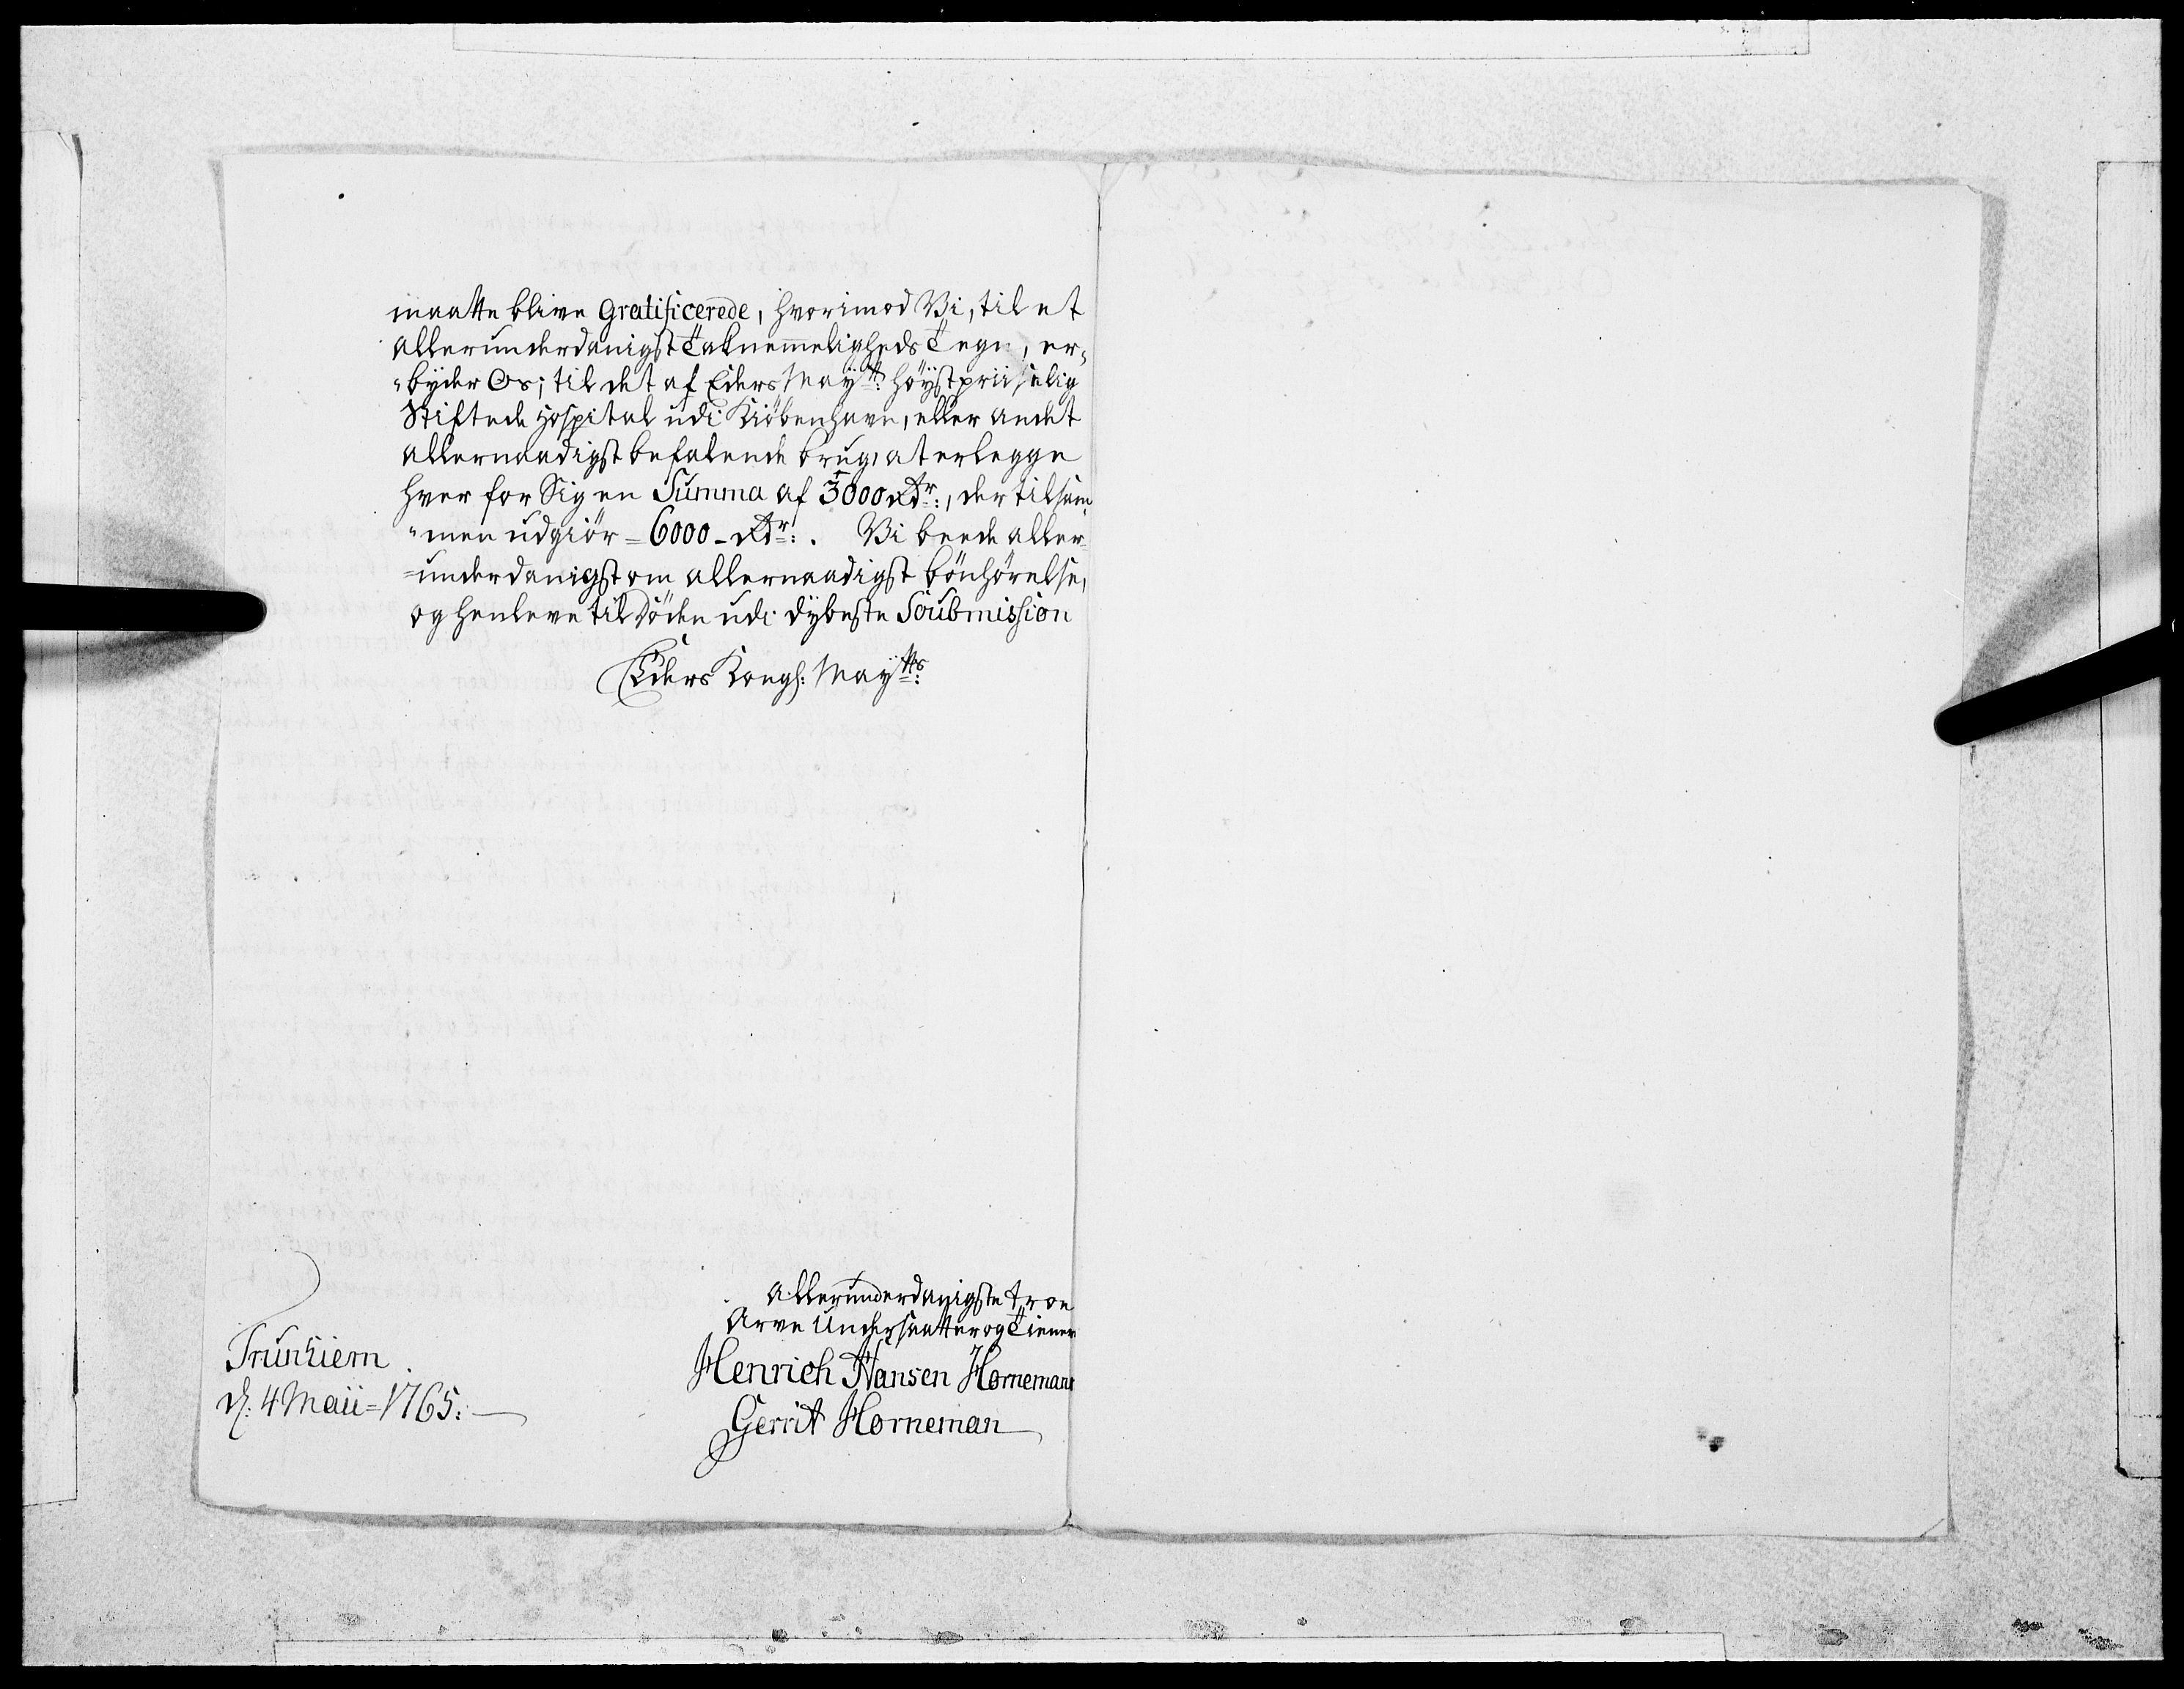 maatte blive Gratificerede, hvorimod Vi, til et
allerunderdanigst Taknemmeligheds Tegn, er„
„byder Os; til det af Eders Maÿtt: höÿstpriiselig
Stiftede Hospital udi Kiöbenhavn, eller andet
allernaadigst befalende brug, at erlegge
hver for Sig en Summa af 3000 Rdr:, der tilsam„
„men udgiör = 6000 - Rdr: . Vi beede aller=
=underdanigst om allernaadigst bönhörelse,
og henleve til Döden udi dÿbeste Soubmission
Eders Kongl: Maÿtts:
Allerunderdanigste troe
Arve Undersaatter og Tiener
Trunhiem
Henrich Hansen Horneman
d: 4 Maii = 1765:
Gerrit Horneman